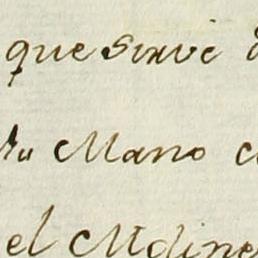 que sirve
su Mano
el Moline